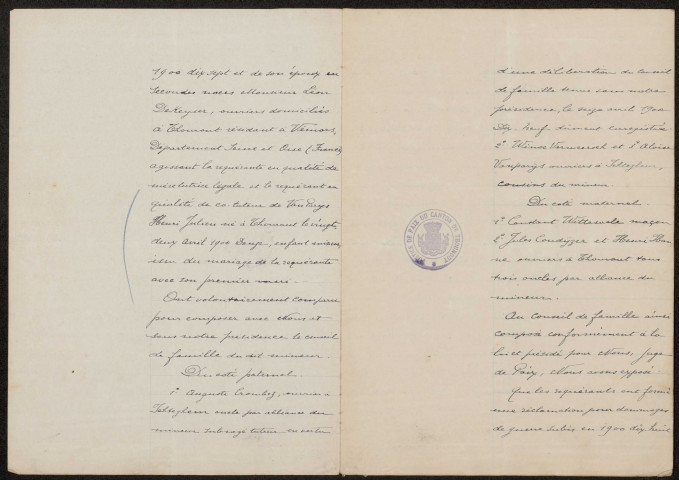 1900 dix sept et de son époux en
secondes noces Monsieur Léon
Dekeyser, ouvriers domiciliés
à Thourout résidant à Viemars,
Département Seine et Oise (France)
agissant la requérante en qualité de
mère tutrice légale et le requérant en
qualité de co-tuteur de
Henri Julien né à Thourout le vingt
deux avril 1900 douze, enfant mineur
issu du mariage de la requérante
avec son premier mari. -
Ont volontairement comparu
pour composer avec Nous et
sous notre présidence le conseil
de famille du dit mineur.
Du côté paternel.
1° Auguste Crombez, ouvrier à
oncle par alliance du
mineur subrogé tuteur en vertu
d'une délibération du conseil
de famille tenue sous notre
présidence, le seize avril 1900
Dix neuf dûment enregistrée
2° Vermeersch et 3° Aloïse
ouvriers à
cousins du mineur.
Du côté maternel.
1° Constant maçon
2° Jules et Henri
ouvriers à Thourout tous
trois oncles par alliance du
mineur.
Au Conseil de famille ainsi
composé conformément à la
loi et présidé par Nous, Juge
de Paix, Nous avons exposé
Que les requérants ont formé
une réclamation pour dommages
de guerre subis en 1900 dix huit
JUSTICE DE PAIX DU CANTON DE THOUROUT